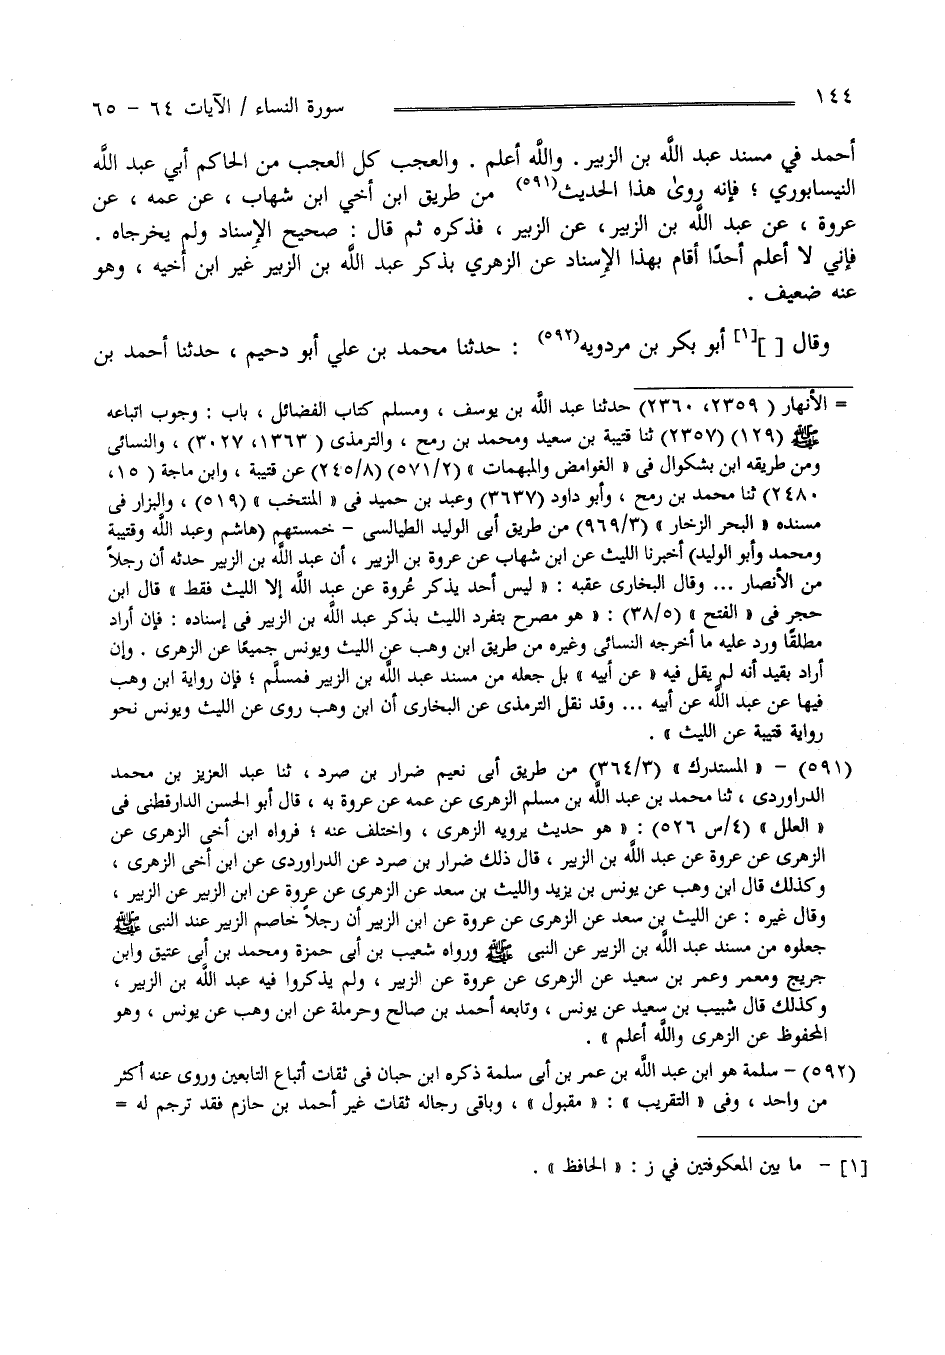 ١٤٤ سورة النساء / الآيات ٦٤ - ٦٥
أحمد في مسند عبد اللَّه بن الزبير . واللَّه أعلم . والعجب كل العجب من الحاكم أبي عبد اللَّه
النيسابوري ؛ فإنه روىٰ هذا الحديث(٥٩١) من طريق ابن أخي ابن شهاب ، عن عمه ، عن
عروة ، عن عبد اللَّه بن الزبير ، عن الزبير ، فذكره ثم قال : صحيح الإسناد ولم يخرجاه .
فإني لا أعلم أحدًا أقام بهذا الإسناد عن الزهري بذكر عبد اللَّه بن الزبير غير ابن أخيه ، وهو
عنه ضعيف .
وقال [ ][١] أبو بكر بن مردويه(٥٩٢) : حدثنا محمد بن علي أبو دحيم ، حدثنا أحمد بن
= الأنهار ( ٢٣٥٩، ٢٣٦٠) حدثنا عبد اللَّه بن يوسف ، ومسلم كتاب الفضائل ، باب : وجوب اتباعه
ﷺ (١٢٩) (٢٣٥٧) ثنا قتيبة بن سعيد ومحمد بن رمح ، والترمذى ( ١٣٦٣، ٣٠٢٧) ، والنسائى
ومن طريقه ابن بشكوال فى « الغوامض والمبهمات » (٥٧١/٢) (٢٤٥/٨) عن قتيبة ، وابن ماجة ( ١٥،
٢٤٨٠) ثنا محمد بن رمح ، وأبو داود (٣٦٣٧) وعبد بن حميد فى « المنتخب » (٥١٩) ، والبزار فى
مسنده « البحر الزخار » (٩٦٩/٣) من طريق أبى الوليد الطيالسى - خمستهم (هاشم وعبد اللَّه وقتيبة
ومحمد وأبو الوليد) أخبرنا الليث عن ابن شهاب عن عروة بن الزبير ، أن عبد اللَّه بن الزبير حدثه أن رجلاً
من الأنصار ... وقال البخارى عقبه : « ليس أحد يذكر عُروة عن عبد اللَّه إلا الليث فقط » قال ابن
حجر فى « الفتح » (٣٨/٥) : « هو مصرح بتفرد الليث بذكر عبد اللَّه بن الزبير فى إسناده : فإن أراد
مطلقًا ورد عليه ما أخرجه النسائى وغيره من طريق ابن وهب عن الليث ويونس جميعًا عن الزهرى . وإن
أراد بقيد أنه لم يقل فيه « عن أبيه » بل جعله من مسند عبد اللَّه بن الزبير فمسلم ؛ فإن رواية ابن وهب
فيها عن عبد اللَّه عن أبيه ... وقد نقل الترمذى عن البخارى أن ابن وهب روى عن الليث ويونس نحو
رواية قتيبة عن الليث » .
(٥٩١) - « المستدرك » (٣٦٤/٣) من طريق أبى نعيم ضرار بن صرد ، ثنا عبد العزيز بن محمد
الدراوردى ، ثنا محمد بن عبد اللَّه بن مسلم الزهرى عن عمه عن عروة به ، قال أبو الحسن الدارقطنى فى
« العلل » (٤/س ٥٢٦) : « هو حديث يرويه الزهرى ، واختلف عنه ؛ فرواه ابن أخى الزهرى عن
الزهرى عن عروة عن عبد اللَّه بن الزبير ، قال ذلك ضرار بن صرد عن الدراوردى عن ابن أخى الزهرى ،
وكذلك قال ابن وهب عن يونس بن يزيد والليث بن سعد عن الزهرى عن عروة عن ابن الزبير عن الزبير ،
وقال غيره : عن الليث بن سعد عن الزهرى عن عروة عن ابن الزبير أن رجلاً خاصم الزبير عند النبى ﷺ
جعلوه من مسند عبد اللَّه بن الزبير عن النبى ﷺ ورواه شعيب بن أبى حمزة ومحمد بن أبى عتيق وابن
جريج ومعمر وعمر بن سعيد عن الزهرى عن عروة عن الزبير ، ولم يذكروا فيه عبد اللَّه بن الزبير ،
وكذلك قال شبيب بن سعيد عن يونس ، وتابعه أحمد بن صالح وحرملة عن ابن وهب عن يونس ، وهو
المحفوظ عن الزهرى واللَّه أعلم » .
(٥٩٢) - سلمة هو ابن عبد اللَّه بن عمر بن أبى سلمة ذكره ابن حبان فى ثقات أتباع التابعين وروى عنه أكثر
من واحد ، وفى « التقريب » : « مقبول » ، وباقى رجاله ثقات غير أحمد بن حازم فقد ترجم له =
[١] - ما بين المعكوفتين في ز : « الحافظ » .